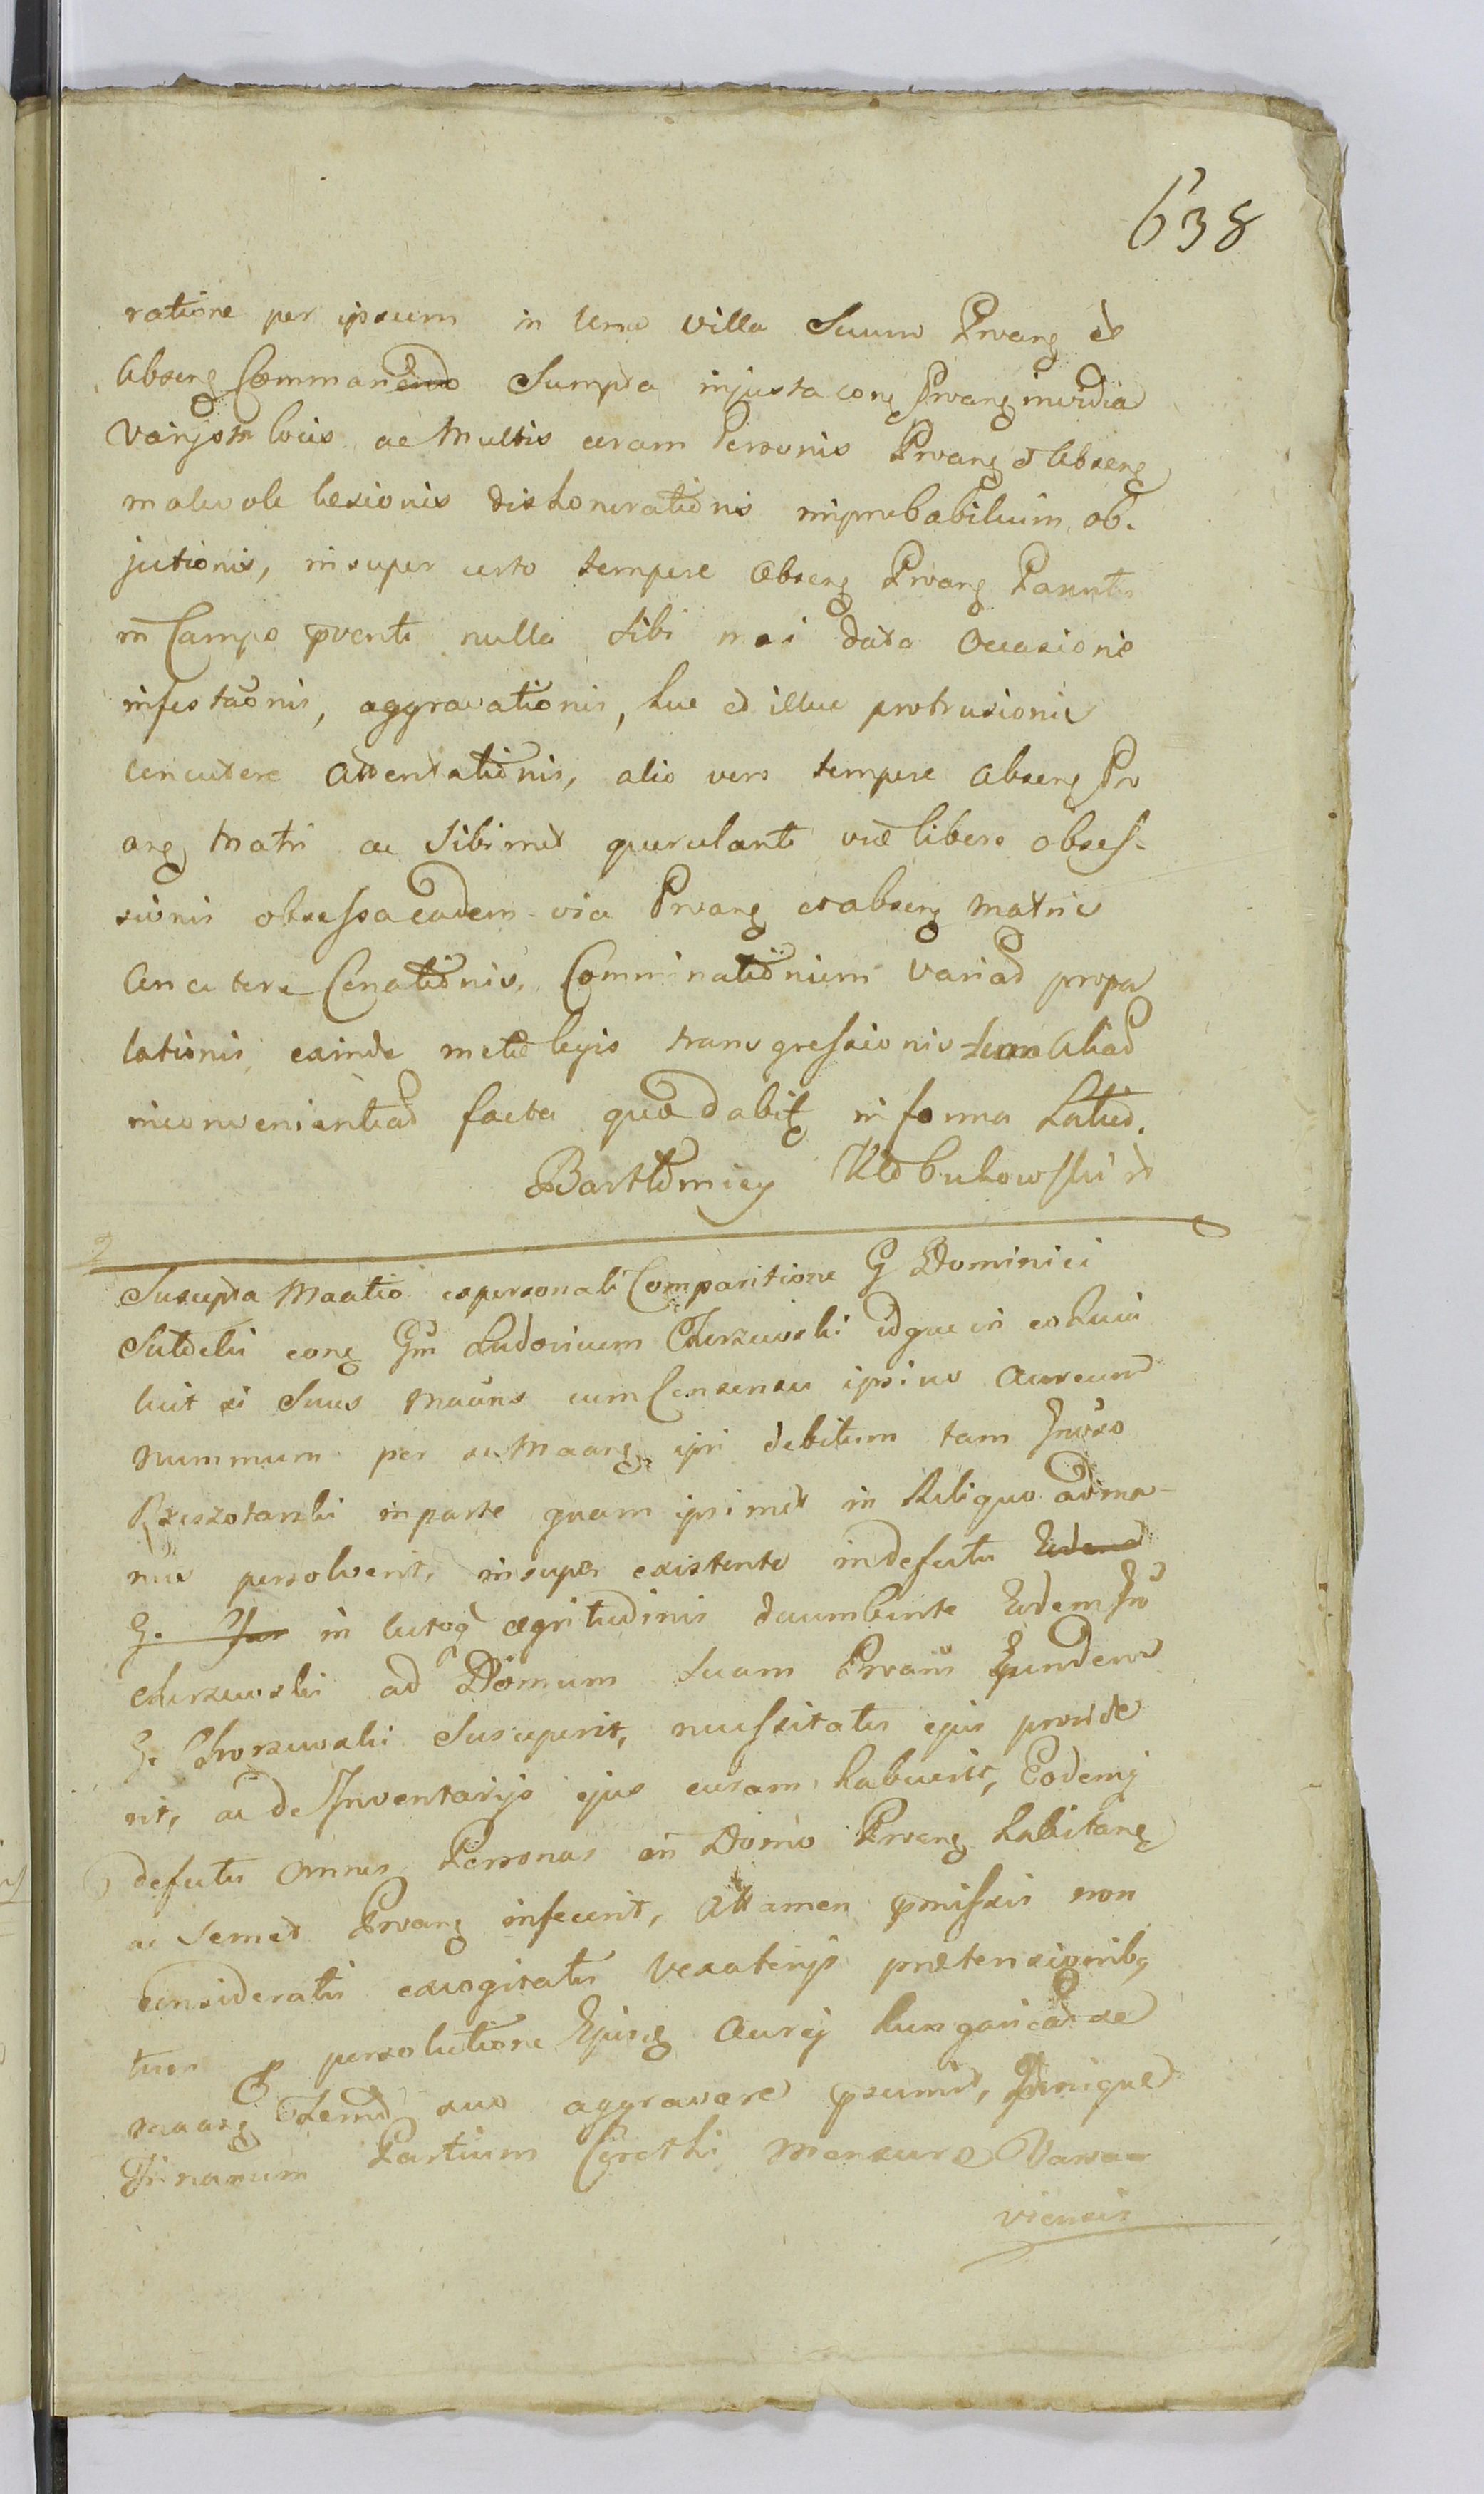 638
ratione per ipsum in Una villa Suum Prvang et
Abseng Comman Sumpta injusta cong Prvang invidia
Varijs in locis ac Multis coram Personis Prvang et Abseng
malevole lesionis dishonorationis improbabilium ob-
jectionis, insuper certo tempore Abseng Prvang
in Campo pventi nulla Sibi data Occasione
infestaonis, aggravationis, huc et illuc protrusionis
Concutere Attentationis, alio vero tempore Abseng Prv
ang Matri ac Sibimet querulanti viæ libere obses-
sionis obsessa eadem via Prvang et abseng Matris
Concutere Conationis, Comminationum variar propa
lationis, exinde metæ legis transgressionis Aliar
inconvenientiar facta quæ dabitr in forma Latior.
Bartłomiey Kłobukowski
Suscepta Maatio ex personali Comparitione G Dominici
cong Gm Ludovicum idque in eo quia
licet is Suus Maans cum Consensu ipsius Aureum
nummum per se Maang ipsi debitum tam
Brzeszotarski in parte quam ipsimet in Reliquo ad ma-
nus persolverit, insuper existente in defectu
G. in lutog ægritudinis decumbente Eodem Gno
ad Domum Suam Prvans Eundem
G. Chorzewski Susceperit, necessitatis ejus provide
rit, ac de Inventarijs ejus curam habuerit, Eodemq
defectu omnes Personas in Domo Prvang habitang
ac Semet Prvang infecerit, Attamen pmissis non
consideratis excogitatis Vexatorijs prætensionibg
tum persolutione Ejusg Aurej hungaricar se
maang suo aggravare psumit, Denique
Partium Mensuræ Varsa-
viensis